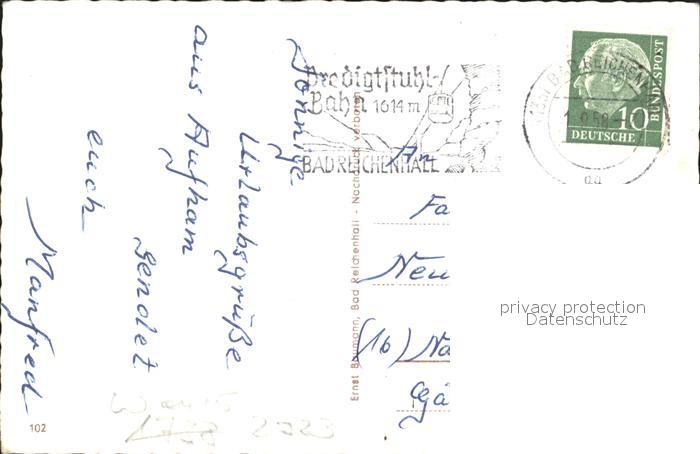 Sonnige
Urlaubsgrüße
aus Aufham
sendet
euch
Manfred
Predigtstuhl-
Bahn 1614 m
BAD REICHENHALL
BAD REICHEN
aa
10
DEUTSCHE
BUNDESPOST
An
Fa
Neu
(16) Na
Gä
Ernst Baumann, Bad Reichenhall - Nachdruck verboten
privacy protection
Datenschutz
102
2023